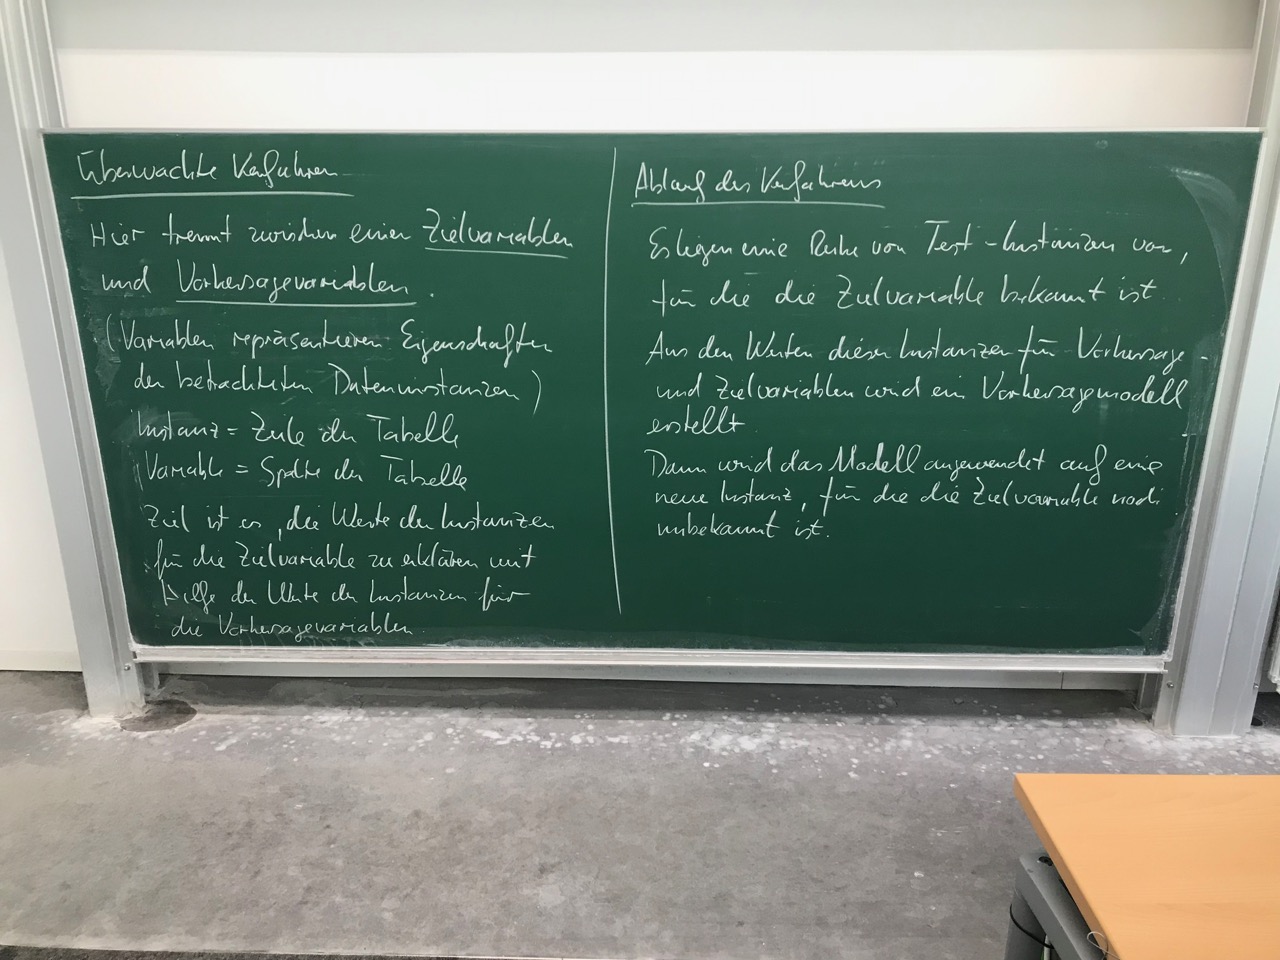 Überwachte Verfahren
Hier trennt zwischen einer Zielvariablen
und Vorhersagevariablen.
(Variablen repräsentieren Eigenschaften
der betrachteten Dateninstanzen)
Instanz = Zeile der Tabelle
Variable = Spalte der Tabelle
Ziel ist es, die Werte der Instanzen
für die Zielvariable zu erklären mit
Hilfe der Werte der Instanzen für
die Vorhersagevariablen.
Ablauf des Verfahrens
Es liegen eine Reihe von Test-Instanzen vor,
für die die Zielvariable bekannt ist.
Aus den Werten dieser Instanzen für Vorhersage-
und Zielvariablen wird ein Vorhersagemodell
erstellt.
Dann wird das Modell angewendet auf eine
neue Instanz, für die die Zielvariable noch
unbekannt ist.